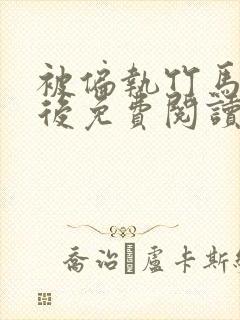 被偏執竹馬
後免費閱讀
喬治 盧卡斯